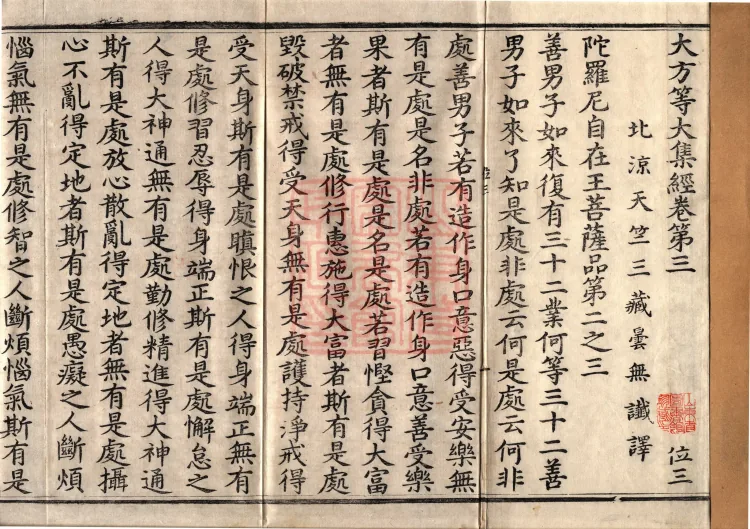 大方等大集經卷第三
位三
北涼天竺三藏曇無讖譯
陀羅尼自在王菩薩品第二之三
善男子如來復有三十二業何等三十二善
男子如來了知是處非處云何是處云何非
處善男子若有造作身口意惡得受安樂無
有是處是名非處若有造作身口意善受樂
果者斯有是處是名是處若習慳貪得大富
者無有是處修行惠施得大富者斯有是處
毀破禁戒得受天身無有是處護持淨戒得
受天身斯有是處瞋恨之人得身端正無有
是處修習忍辱得身端正斯有是處懈怠之
人得大神通無有是處勤修精進得大神通
斯有是處放心散亂得定地者無有是處攝
心不亂得定地者斯有是處愚癡之人斷煩
惱氣無有是處修智之人斷煩惱氣斯有是